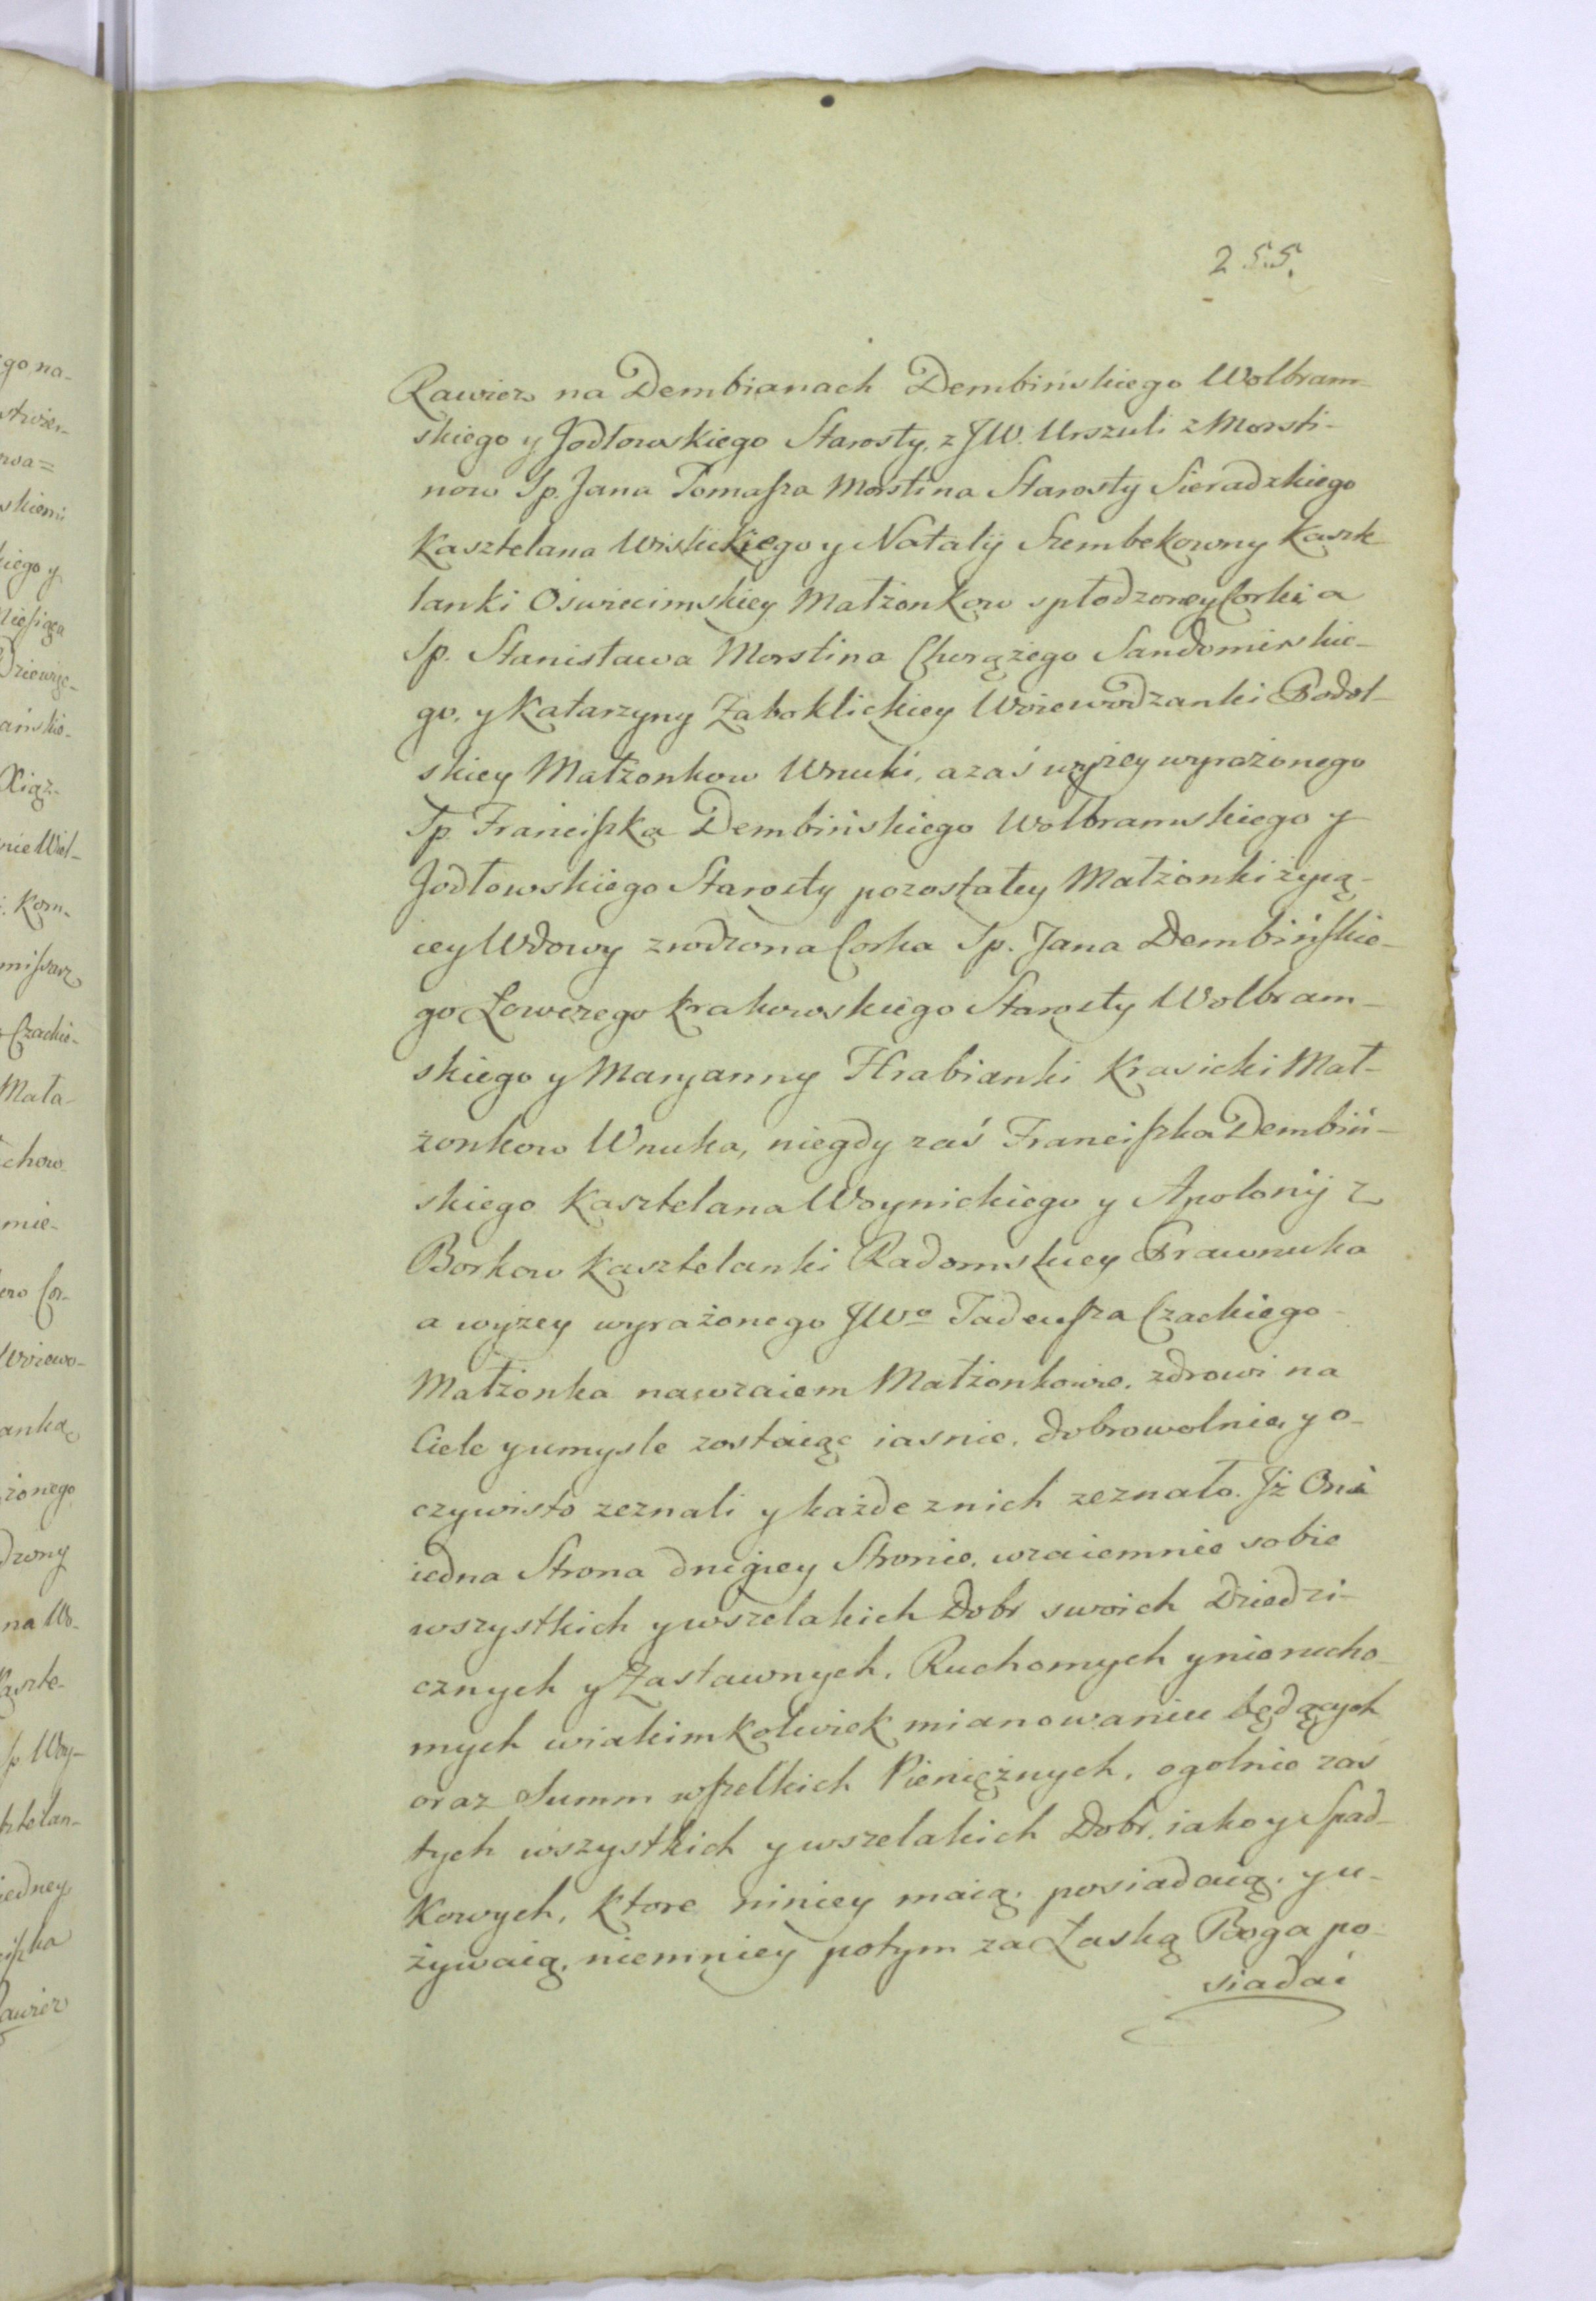 255.
Rawicz na Dembianach Dembińskiego Wolbram-
skiego y Jodłowskiego Starosty, z JW. Urszuli z Morsti-
now Sp. Jana Tomasza Morstina Starosty Sieradzkiego
Kasztelana Wislickiego y Natalij Szembekowny Kaszte
lanki Oswiecimskiey Małżonkow spłodzoney Corki a
Sp. Stanisława Morstina Chorążego Sandomirskie-
go, y Katarzyny Zaboklickiey Woiewodzanki Podol-
skiey Małżonkow Wnuki, a zaś wyżey wyrażonego
Sp. Franciszka Dembińskiego Wolbramskiego y
Jodłowskiego Starosty pozostałey Małżonki żyią-
cey Wdowy zrodzona Corka Sp. Jana Dembińskie-
go Łowczego Krakowskiego Starosty Wolbram-
skiego y Maryanny Hrabianki Krasicki Mał-
żonkow Wnuka, niegdy zaś Franciszka Dembiń-
skiego Kasztelana Woynickiego y Apolonij z
Borkow Kasztelanki Radomskiey Prawnuka
a wyżey wyrażonego JWo Tadeusza Czackiego
Małżonka nawzaiem Małżonkowie, zdrowi na
Ciele y umysle zostaiąc iasnie, dobrowolnie, y o-
czywisto zeznali y każde z nich zeznało. Jż Oni
iedna Strona drugiey Stronie, wzaiemnie sobie
wszystkich y wszelakich Dobr swoich Dziedzi-
cznych y Zastawnych, Ruchomych y nierucho-
mych w iakimkolwiek mianowaniu będących
oraz Summ wszelkich Pieniężnych, ogolnie zaś
tych wszystkich y wszelakich Dobr, iako y Spad-
kowych, ktore niniey maią, posiadaią, y u-
żywaią, niemniey potym za Łaską Boga po-
siadać